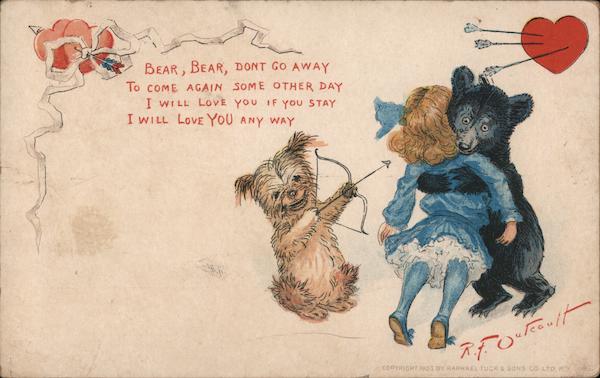 BEAR, BEAR, DONT GO AWAY
TO COME AGAIN SOME OTHER DAY
I WILL LOVE YOU IF YOU STAY
I WILL LOVE YOU ANY WAY
R.F. Outcault
COPYRIGHT 1903 BY RAPHAEL TUCK & SONS CO. LTD. N.Y.